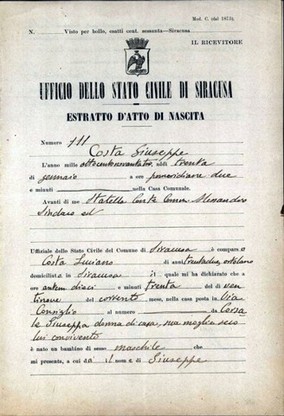 Mod. C. (del 1875).
N. Visto per bollo, esatti cent. sessanta—Siracusa
IL RICEVITORE
UFFICIO DELLO STATO CIVILE DI SIRACUSA
ESTRATTO D'ATTO DI NASCITA
Numero 111
Costa Giuseppe
L'anno mille ottocentosettantatre, addì trenta
di gennaio a ore pomeridiane due
e minuti nella Casa Comunale.
Avanti di me Statella Conte Alessandro
Sindaco ed
Ufficiale dello Stato Civile del Comune di Siracusa è comparso
Costa Luciano di anni trentadue, ortolano
domiciliato in Siracusa il quale mi ha dichiarato che a
ore antem. dieci e minuti trenta del dì ven
tinove del corrente mese, nella casa posta in Via
Consiglio al numero da Corsa
le Giuseppa donna di casa, sua moglie seco
lui convivente
è nato un bambino di sesso maschile che
mi presenta, a cui dà il nome di Giuseppe